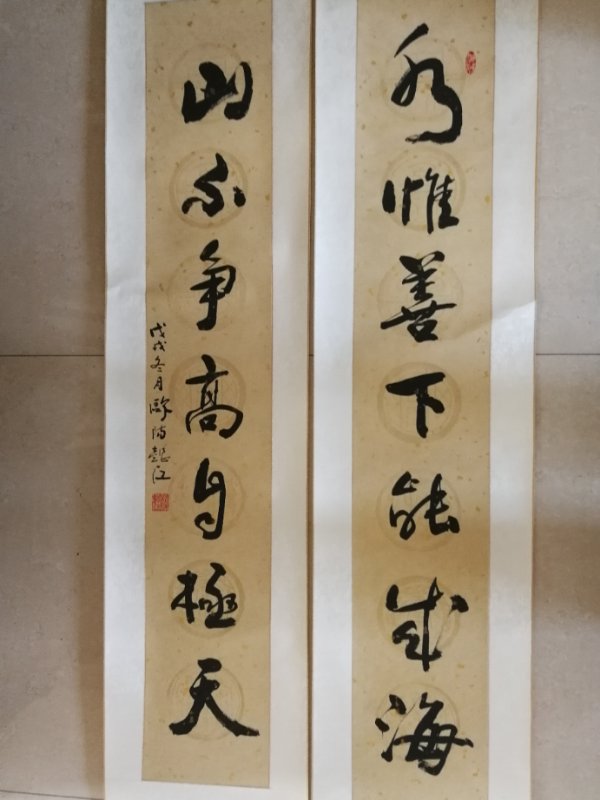 水惟善下能成海
山不争高自极天
戊戌冬月歐阳懿江